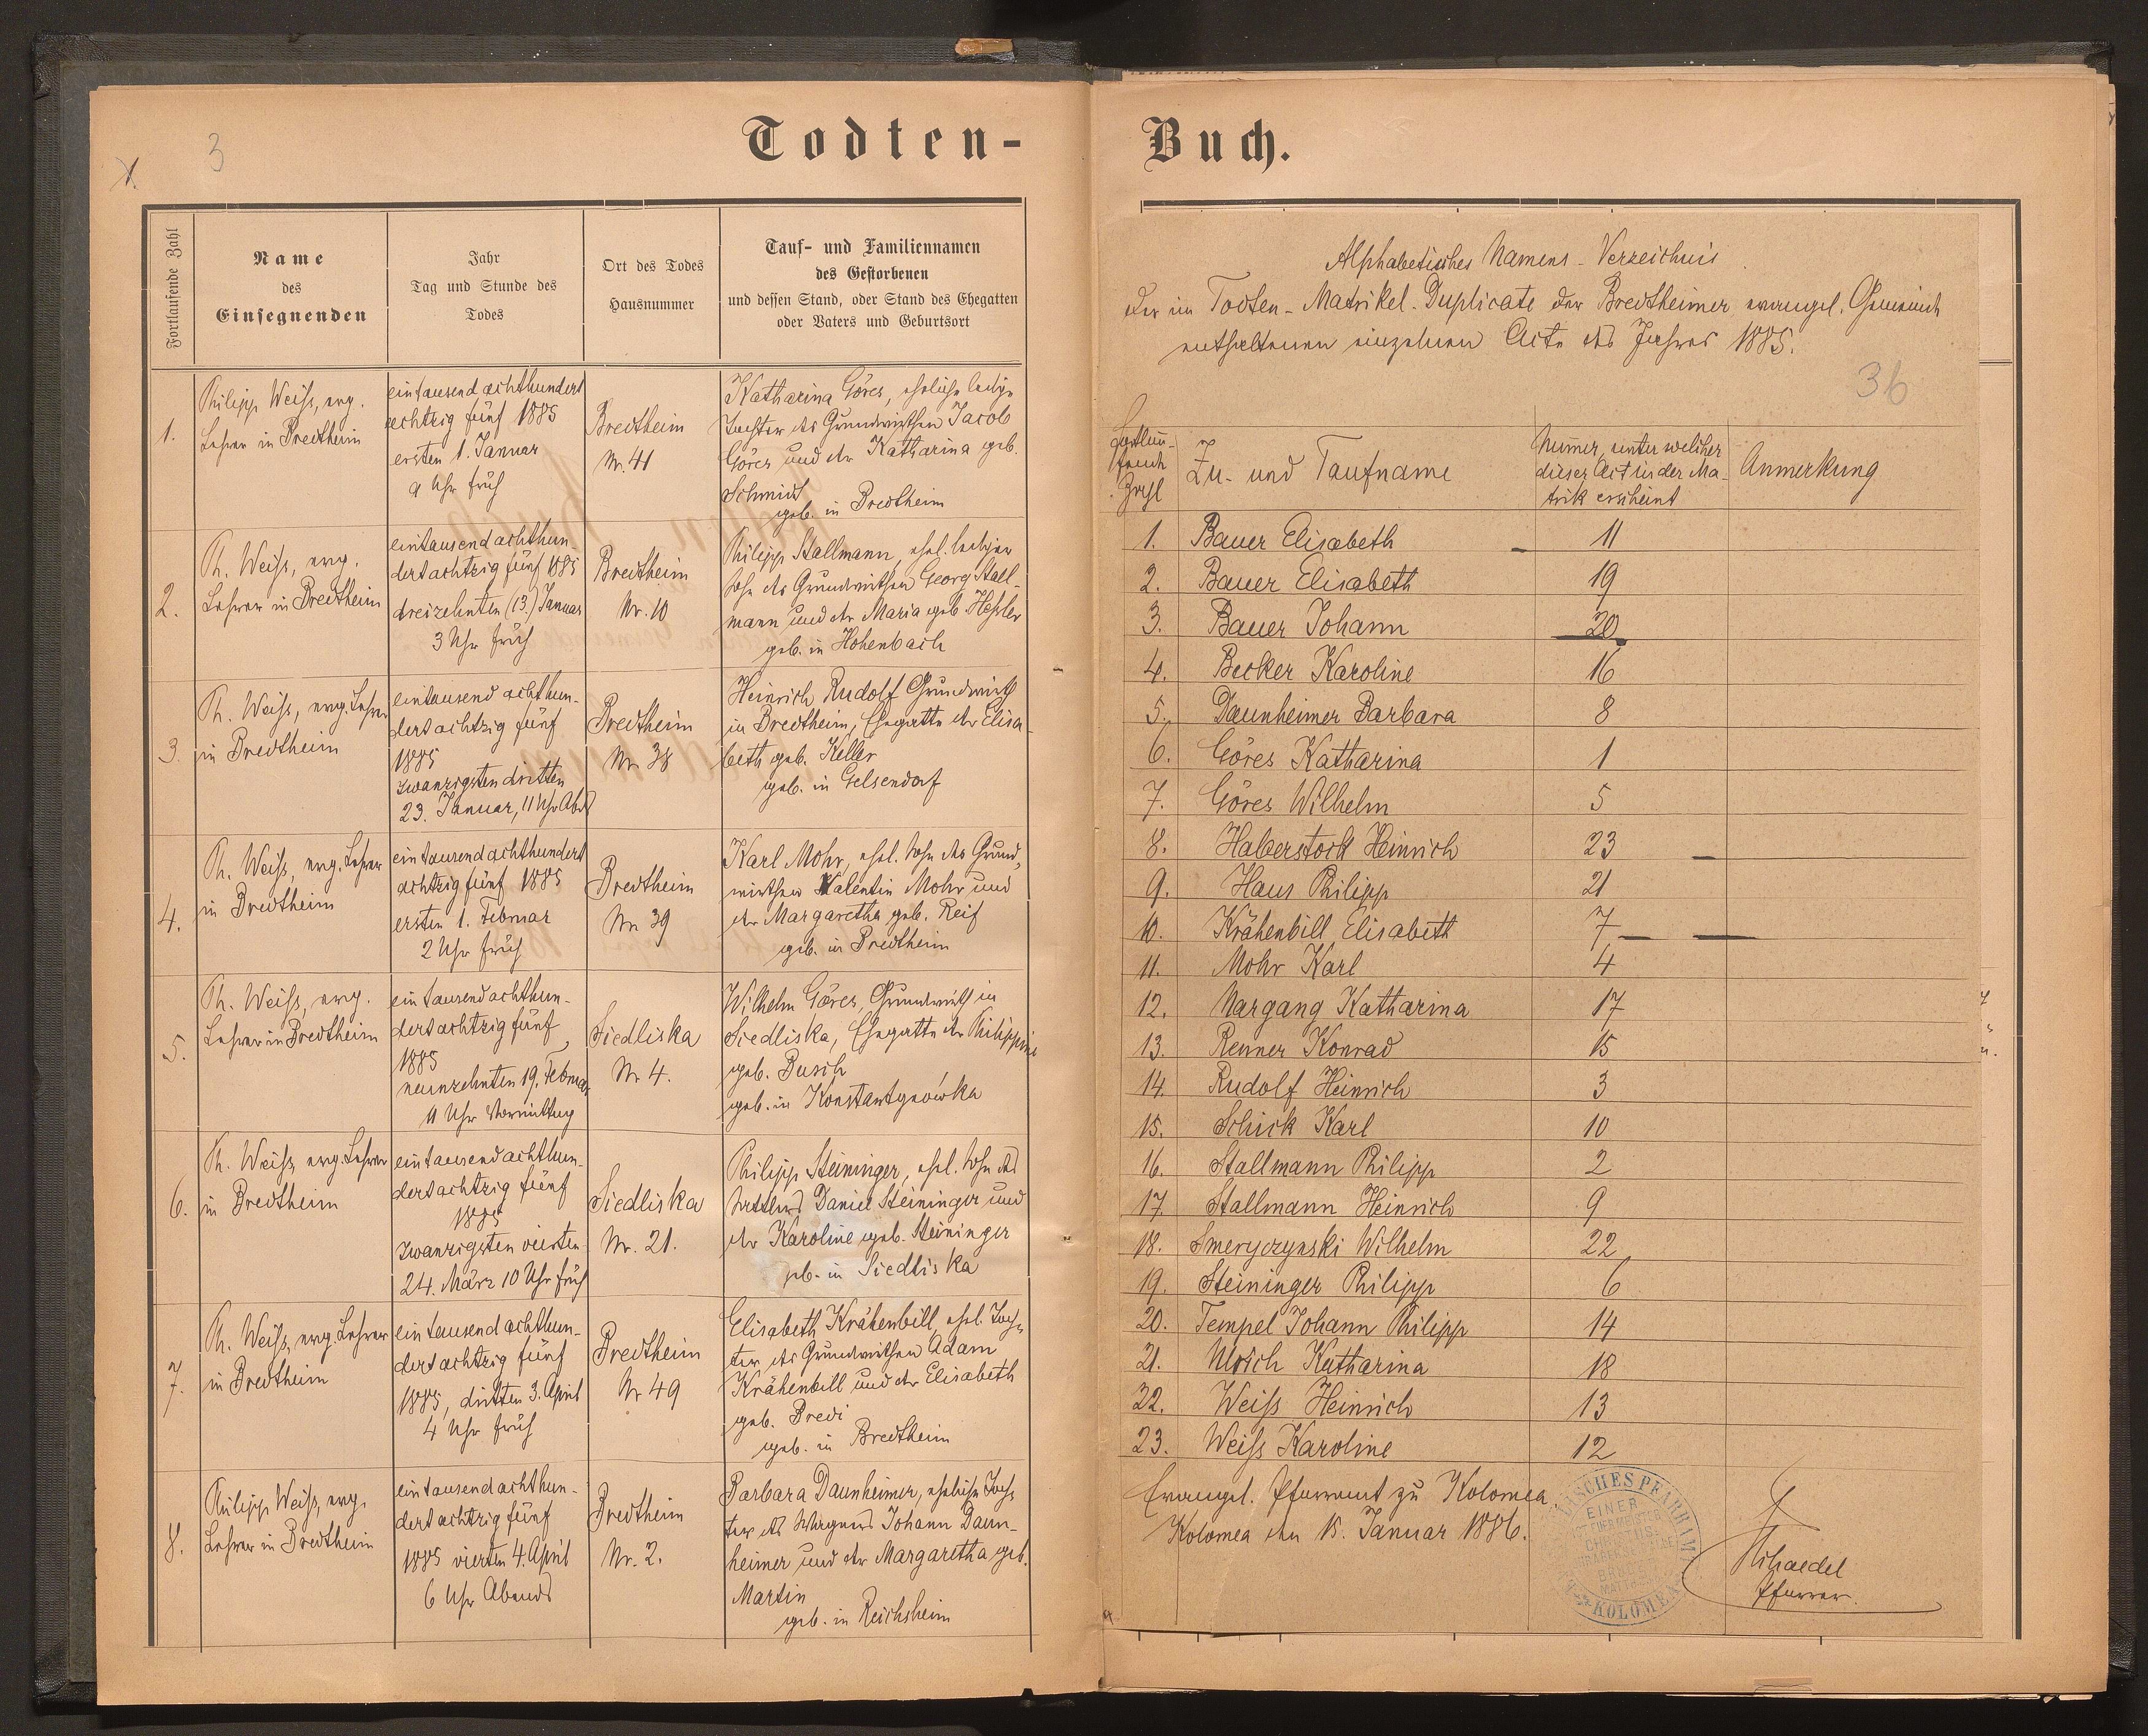 3
Todten-
Fortlaufende Zahl
Name
des
Einsegnenden
Jahr
Tag und Stunde des
Todes
Ort des Todes
Hausnummer
Tauf- und Familiennamen
des Gestorbenen
und dessen Stand, oder Stand des Ehegatten
oder Vaters und Geburtsort
1.
Philipp Weiß, evg.
Lehrer in Bredtheim
eintausend achthundert
achtzig fünf 1885
ersten 1. Januar
9 Uhr früh
Bredtheim
Nr. 41
Katharina Göres, eheliche ledige
Tochter des Grundwirthen Jacob
Göres und der Katharina geb.
Schmidt
geb. in Bredtheim
2.
Ph. Weiß, evg.
Lehrer in Bredtheim
eintausend achthun-
dert achtzig fünf 1885
dreizehnten (13.) Januar
3 Uhr früh
Bredtheim
Nr. 10
Philipp Stallmann, ehel. lediger
Sohn des Grundwirthen Georg Stall-
mann und der Maria geb. Heßler
geb. in Hohenbach
3.
Ph. Weiß, evg. Lehrer
in Bredtheim
eintausend achthun-
dert achtzig fünf
1885
zwanzigsten dritten
23. Januar, 11 Uhr Abds
Bredtheim
Nr. 38
Heinrich Rudolf Grundwirth
in Bredtheim, Ehegatte der Elisa-
beth geb. Keller
geb. in Gelsendorf
4.
Ph. Weiß, evg. Lehrer
in Bredtheim
eintausend achthundert
achtzig fünf 1885
ersten 1. Februar
2 Uhr früh
Bredtheim
Nr. 39
Karl Mohr, ehel. Sohn des Grund-
wirthen Valentin Mohr und
der Margaretha geb. Reif
geb. in Bredtheim
5.
Ph. Weiß, evg.
Lehrer in Bredtheim
eintausend achthun-
dert achtzig fünf
1885
neunzehnten 19. Februar
11 Uhr Vormittag
Siedliska
Nr. 4.
Wilhelm Göres, Grundwirth in
Siedliska, Ehegatte der Philippine
geb. Busch
geb. in Konstantynówka
6.
Ph. Weiß, evg. Lehrer
in Bredtheim
eintausend achthun-
dert achtzig fünf
1885
zwanzigsten vierten
24. März 10 Uhr früh
Siedliska
Nr. 21.
Philipp Steininger, ehel. Sohn des
Daniel Steininger und
der Karoline geb. Steininger
geb. in Siedliska
7.
Ph. Weiß, evg. Lehrer
in Bredtheim
eintausend achthun-
dert achtzig fünf
1885, dritten 3. April
4 Uhr früh
Bredtheim
Nr 49
Elisabeth Krähenbill, ehel. Toch-
ter des Grundwirthen Adam
Krähenbill und der Elisabeth
geb. Bredi
geb. in Bredtheim
8.
Philipp Weiß, evg.
Lehrer in Bredtheim
eintausend achthun-
dert achtzig fünf
1885 vierten 4. April
6 Uhr Abends
Bredtheim
Nr. 2.
Barbara Daunheimer, eheliche Toch-
ter des Wagners Johann Daun-
heimer und der Margaretha geb.
Martin
geb. in Reichsheim
Buch.
Alphabetisches Namens-Verzeichnis
der im Todten-Matrikel-Duplicate der Bredtheimer evangel. Gemeinde
enthaltenen einzelnen Acte des Jahres 1885.
36
Fortlau-
fende
Zahl
Zu- und Taufname
Numer, unter welcher
dieser Act in der Ma-
trik erscheint
Anmerkung
1. Bauer Elisabeth 11
2. Bauer Elisabeth 19
3. Bauer Johann 20
4. Becker Karoline 16
5. Daunheimer Barbara 8
6. Göres Katharina 1
7. Göres Wilhelm 5
8. Haberstock Heinrich 23
9. Haus Philipp 21
10. Krähenbill Elisabeth 7
11. Mohr Karl 4
12. Nargang Katharina 17
13. Renner Konrad 15
14. Rudolf Heinrich 3
15. Schick Karl 10
16. Stallmann Philipp 2
17. Stallmann Heinrich 9
18. Smeryczynski Wilhelm 22
19. Steininger Philipp 6
20. Tempel Johann Philipp 14
21. Ulrich Katharina 18
22. Weiß Heinrich 13
23. Weiß Karoline 12
Evangel. Pfarramt zu Kolomea.
Kolomea den 15. Januar 1886.
ISCHES PFARRAM
EINER
KOLOMEA
Pfarrer.